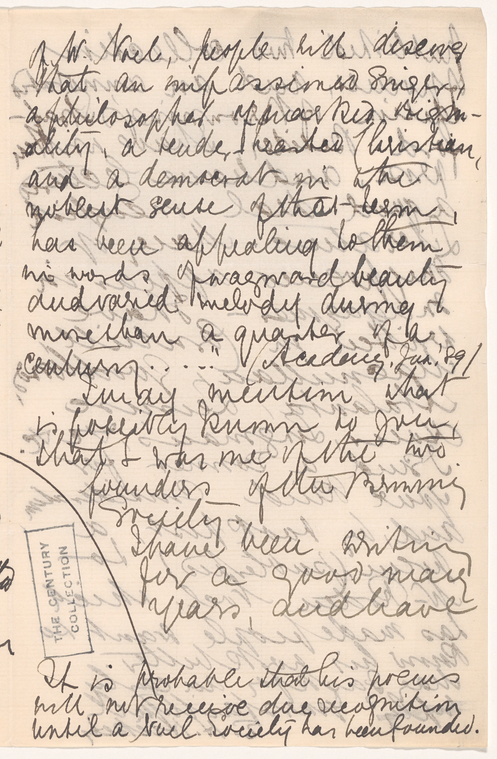 of W. Noel, people will discover
that an impassioned singer,
a philosopher of marked origin-
ality, a tender-hearted Christian,
and a democrat in the
noblest sense of that term,
has been appealing to them
in words of wayward beauty
and varied melody during
more than a quarter of a
century....." (Academy, Jan. '89)
I may mention what
is possibly known to you,
that I was one of the two
founders of the Browning
Society
I have been writing
for a good many
years, and have
THE CENTURY
COLLECTION
It is probable that his poems
will not receive due recognition
until a Noel Society has been founded.